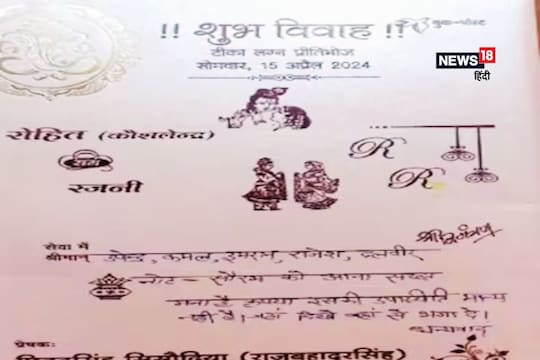 !! शुभ विवाह !!
बुक-पोस्ट
टीका लग्न प्रीतिभोज
सोमवार, 15 अप्रैल 2024
NEWS 18
हिंदी
रोहित (कौशलेन्द्र)
संग
रजनी
R
R
सेवा में
श्रीमान् उपेन्द्र, कमल, इमरान, राजेश, दलवीर
नोट - सौरभ को आना सख्त
मना है कृपया इसकी उपस्थिति मान्य
नहीं है। यहां दिखे वहां से भगा दें।
धन्यवाद
प्रेषक:
(राजबहादरसिंह)